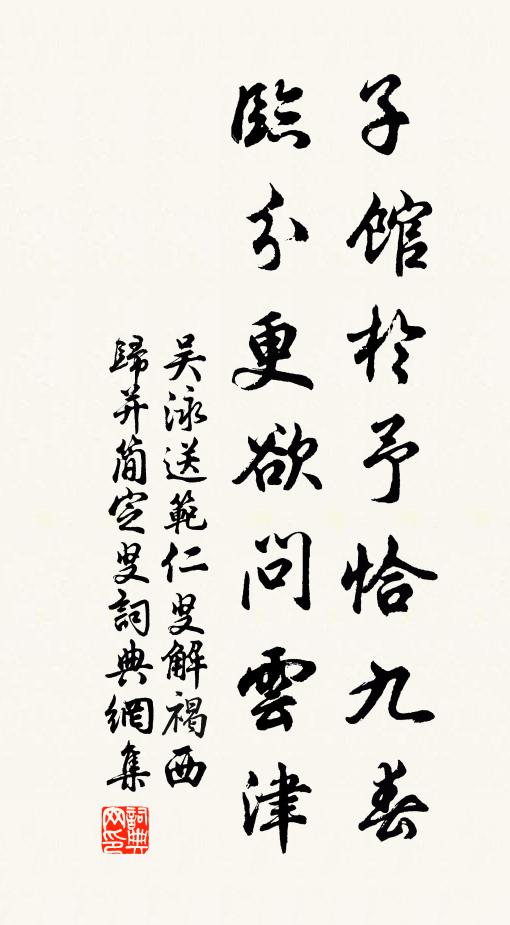 子館於予恰九春
臨分更欲問雲津
吴泳送範仁叟解褐西
歸并簡定叟詞典網集
詞典网印